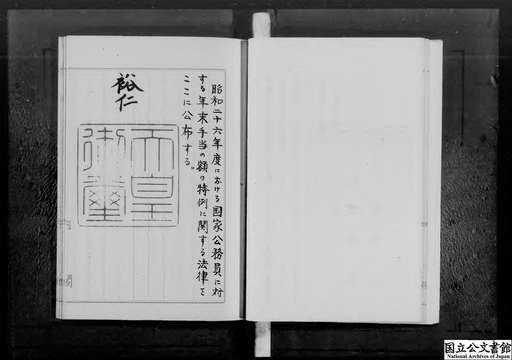 昭和二十六年度における国家公務員に対
する年末手当の額の特例に関する法律を
ここに公布する。
裕仁
天皇
御璽
国立公文書館
National Archives of Japan